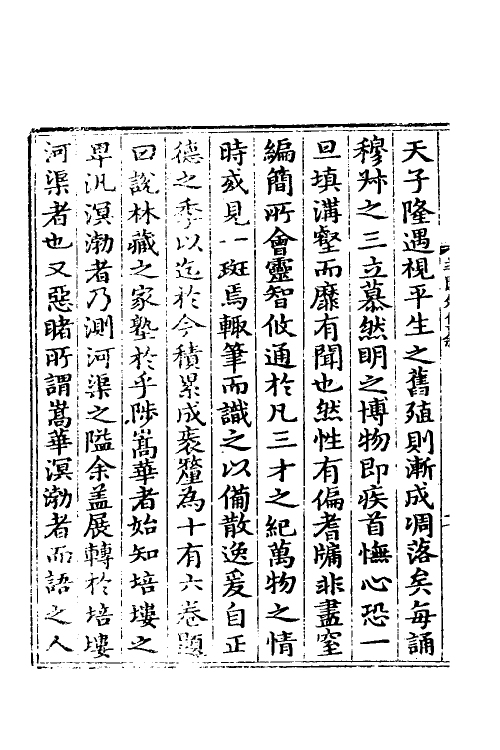 天子隆遇視平生之舊殖則漸成凋落矣每誦
穆叔之三立慕然明之博物即疾首憮心恐一
旦填溝壑而靡有聞也然性有偏耆牖非盡窒
編簡所會靈智攸通於凡三才之紀萬物之情
時或見一斑焉輙筆而識之以備散逸爰自正
德之季以迄於今積累成袠釐為十有六卷題
曰說林藏之家塾於乎陟嵩華者始知培塿之
卑汎溟渤者乃測河渠之隘余盖展轉於培塿
河渠者也又惡睹所謂嵩華溟渤者而語之人